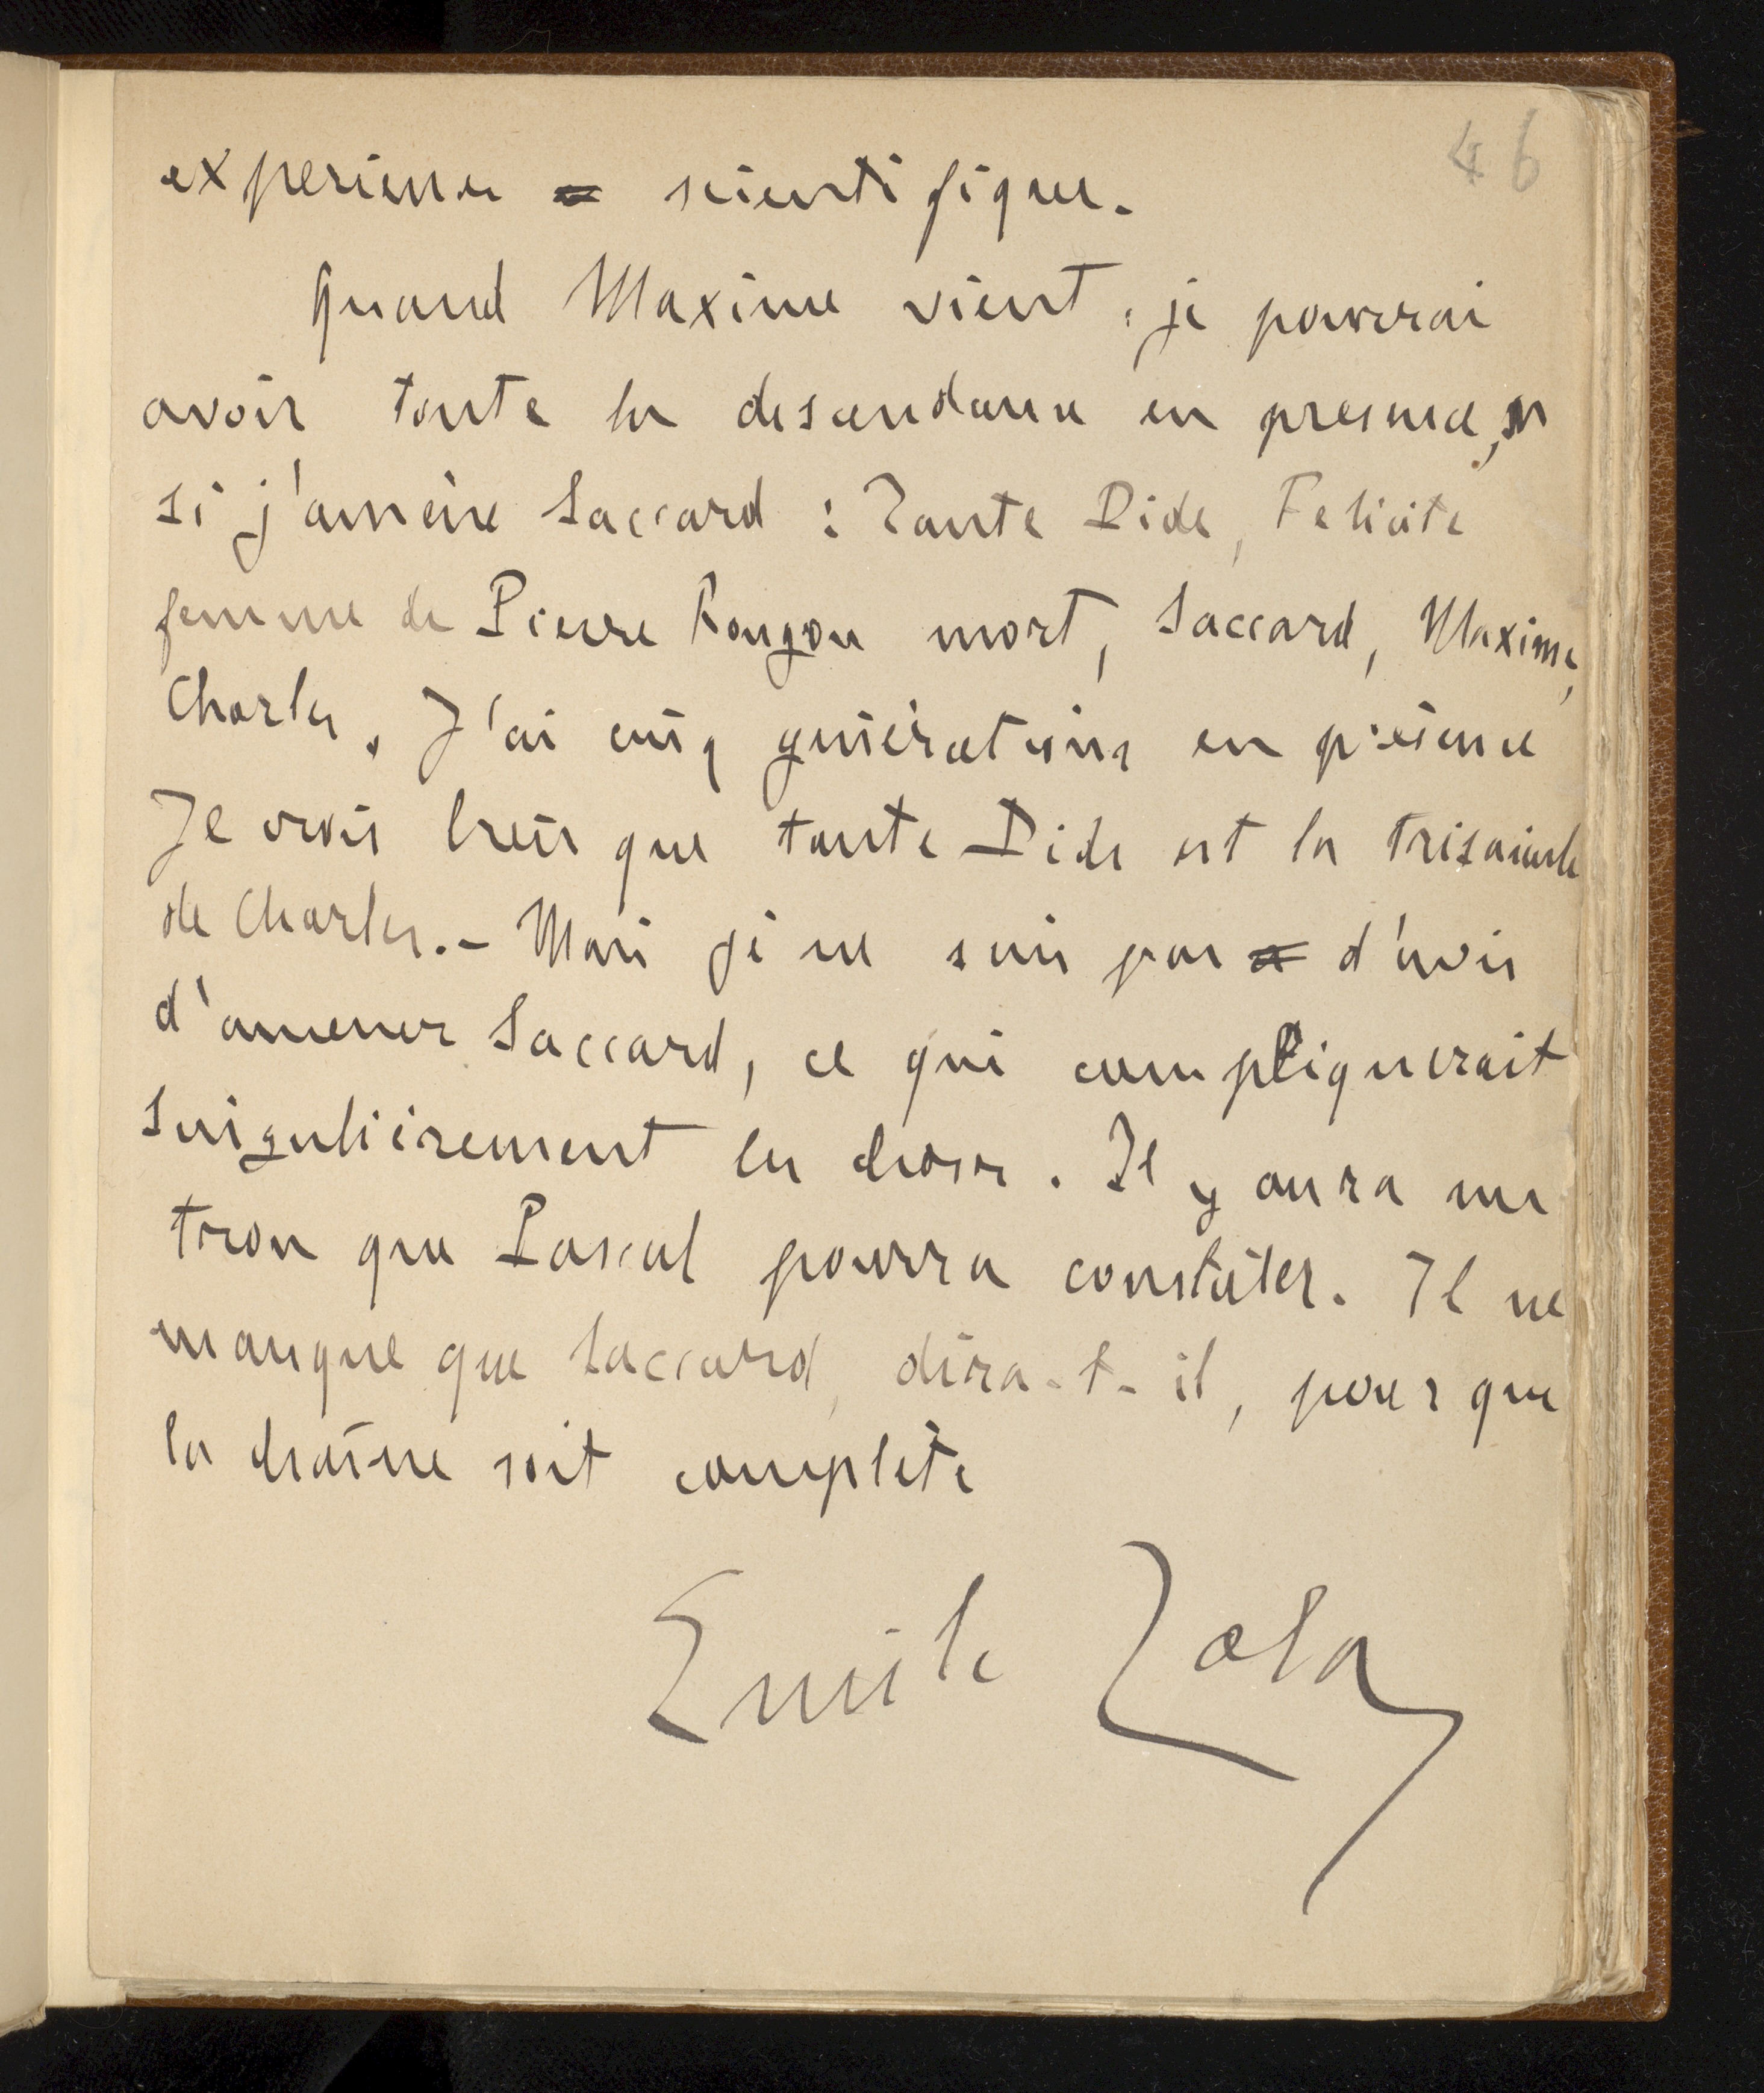 46
experience scientifique.
Quand Maxime vient, je pourrai
avoir toute la descendance en presence,
si j'amène Saccard : Tante Dide, Felicite
femme de Pierre Rougon mort, Saccard, Maxime,
Charles. J'ai cinq générations en présence
Je crois bien que tante Dide est la trisaieule
de Charles. - Mais je ne suis pas d'avis
d'amener Saccard, ce qui compliquerait
singulièrement les choses. Il y aura un
trou que Pascal pourra constater. Il ne
manque que Saccard, dira-t-il, pour que
la chaîne soit complète
Emile Zola